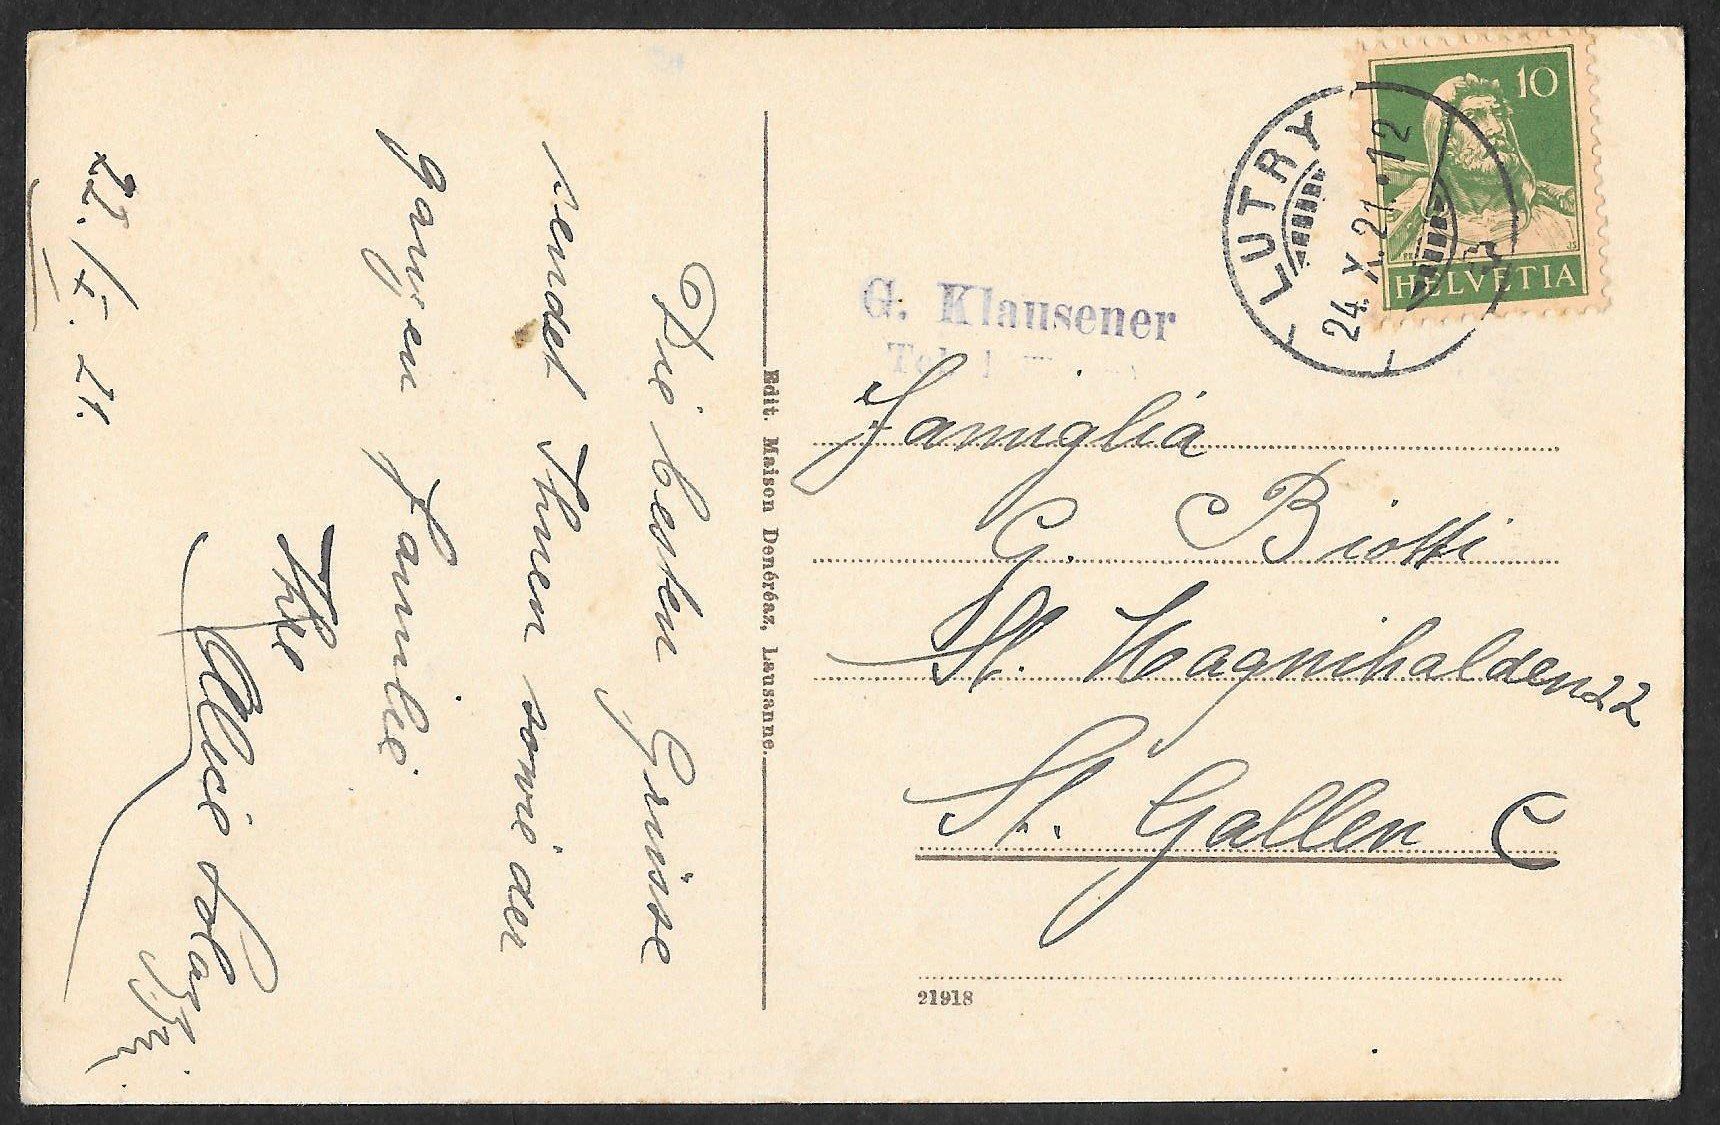 Die besten Grüsse
sendet Ihnen sowie der
ganzen Familie
Ihre
Alice
22. X. 21.
Edit. Maison Denéréaz, Lausanne.
10
HELVETIA
LUTRY
24. X. 21. 12
G. Klausener
Famiglia
G. Biotti
St. Magnihalden 22
St. Gallen C
21918